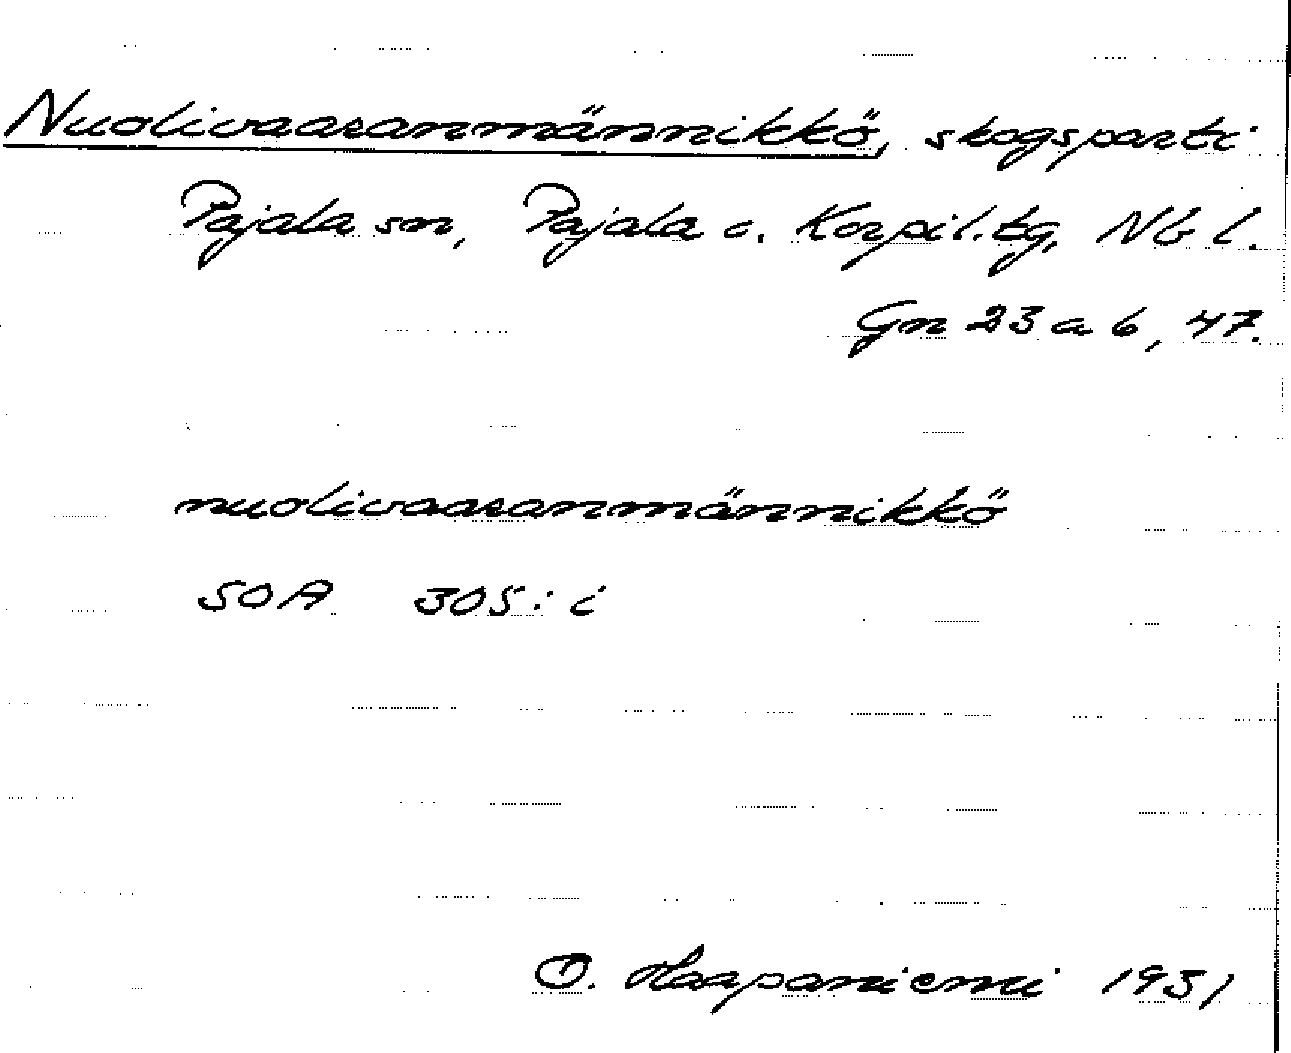 Nuolivaaranmännikkö, skogsparti
Pajala sn, Pajala o. Korpil. tg, Nb l.
Gn 23 a b, 47.
nuolivaaranmännikkö
SOA 305: i
O. Haapaniemi 1931